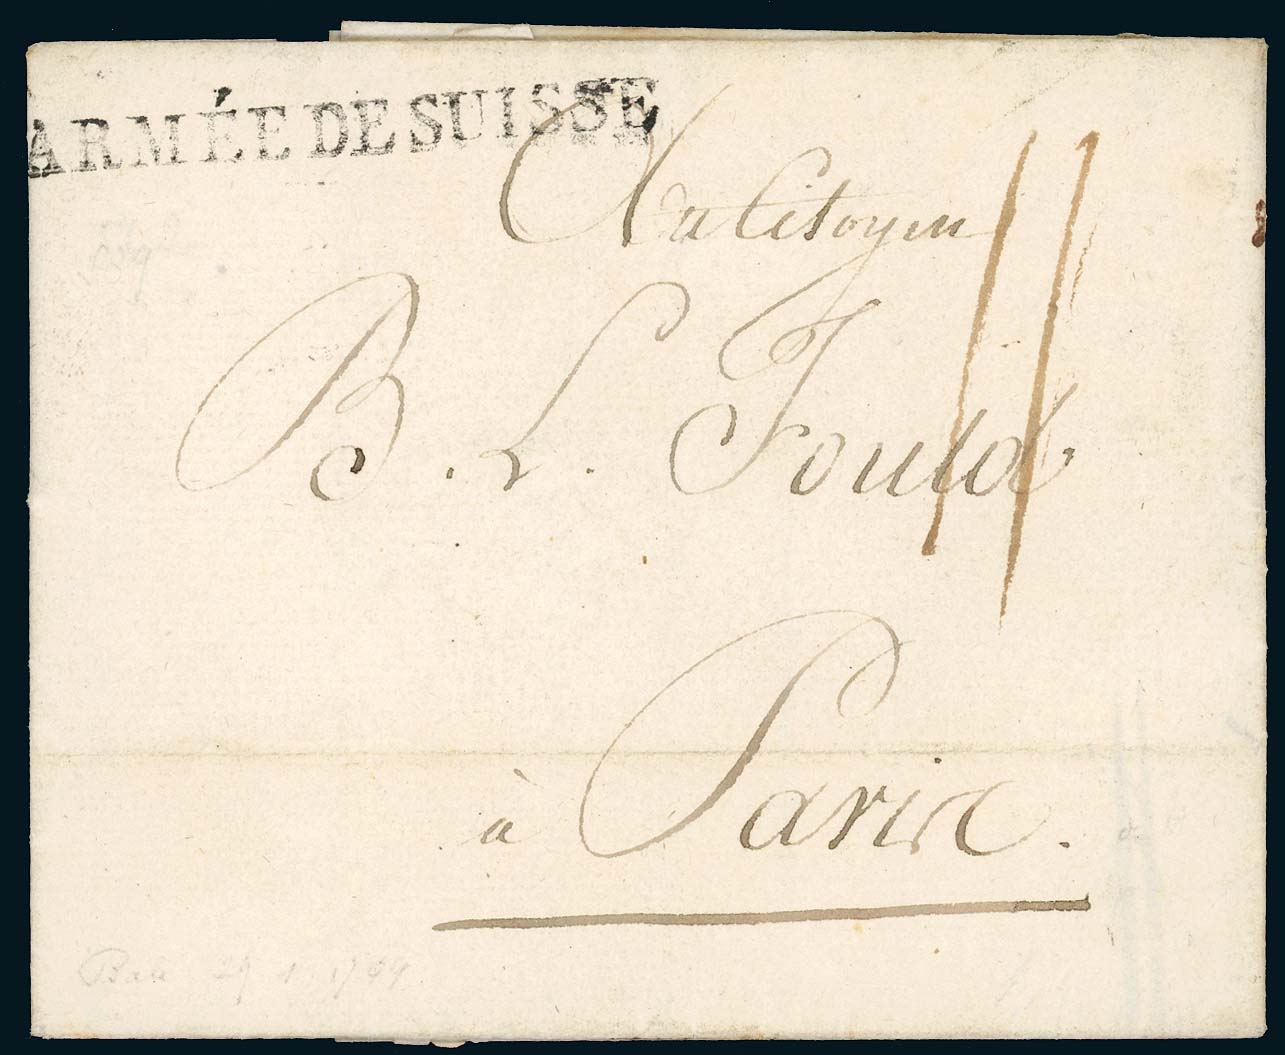 ARMÉE DE SUISSE
Au Citoyen
11
B. L. Fould.
à Paris.
Bale 29 1 1799